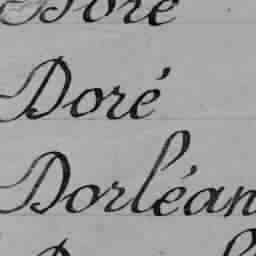 Doré
Doré
Dorléan